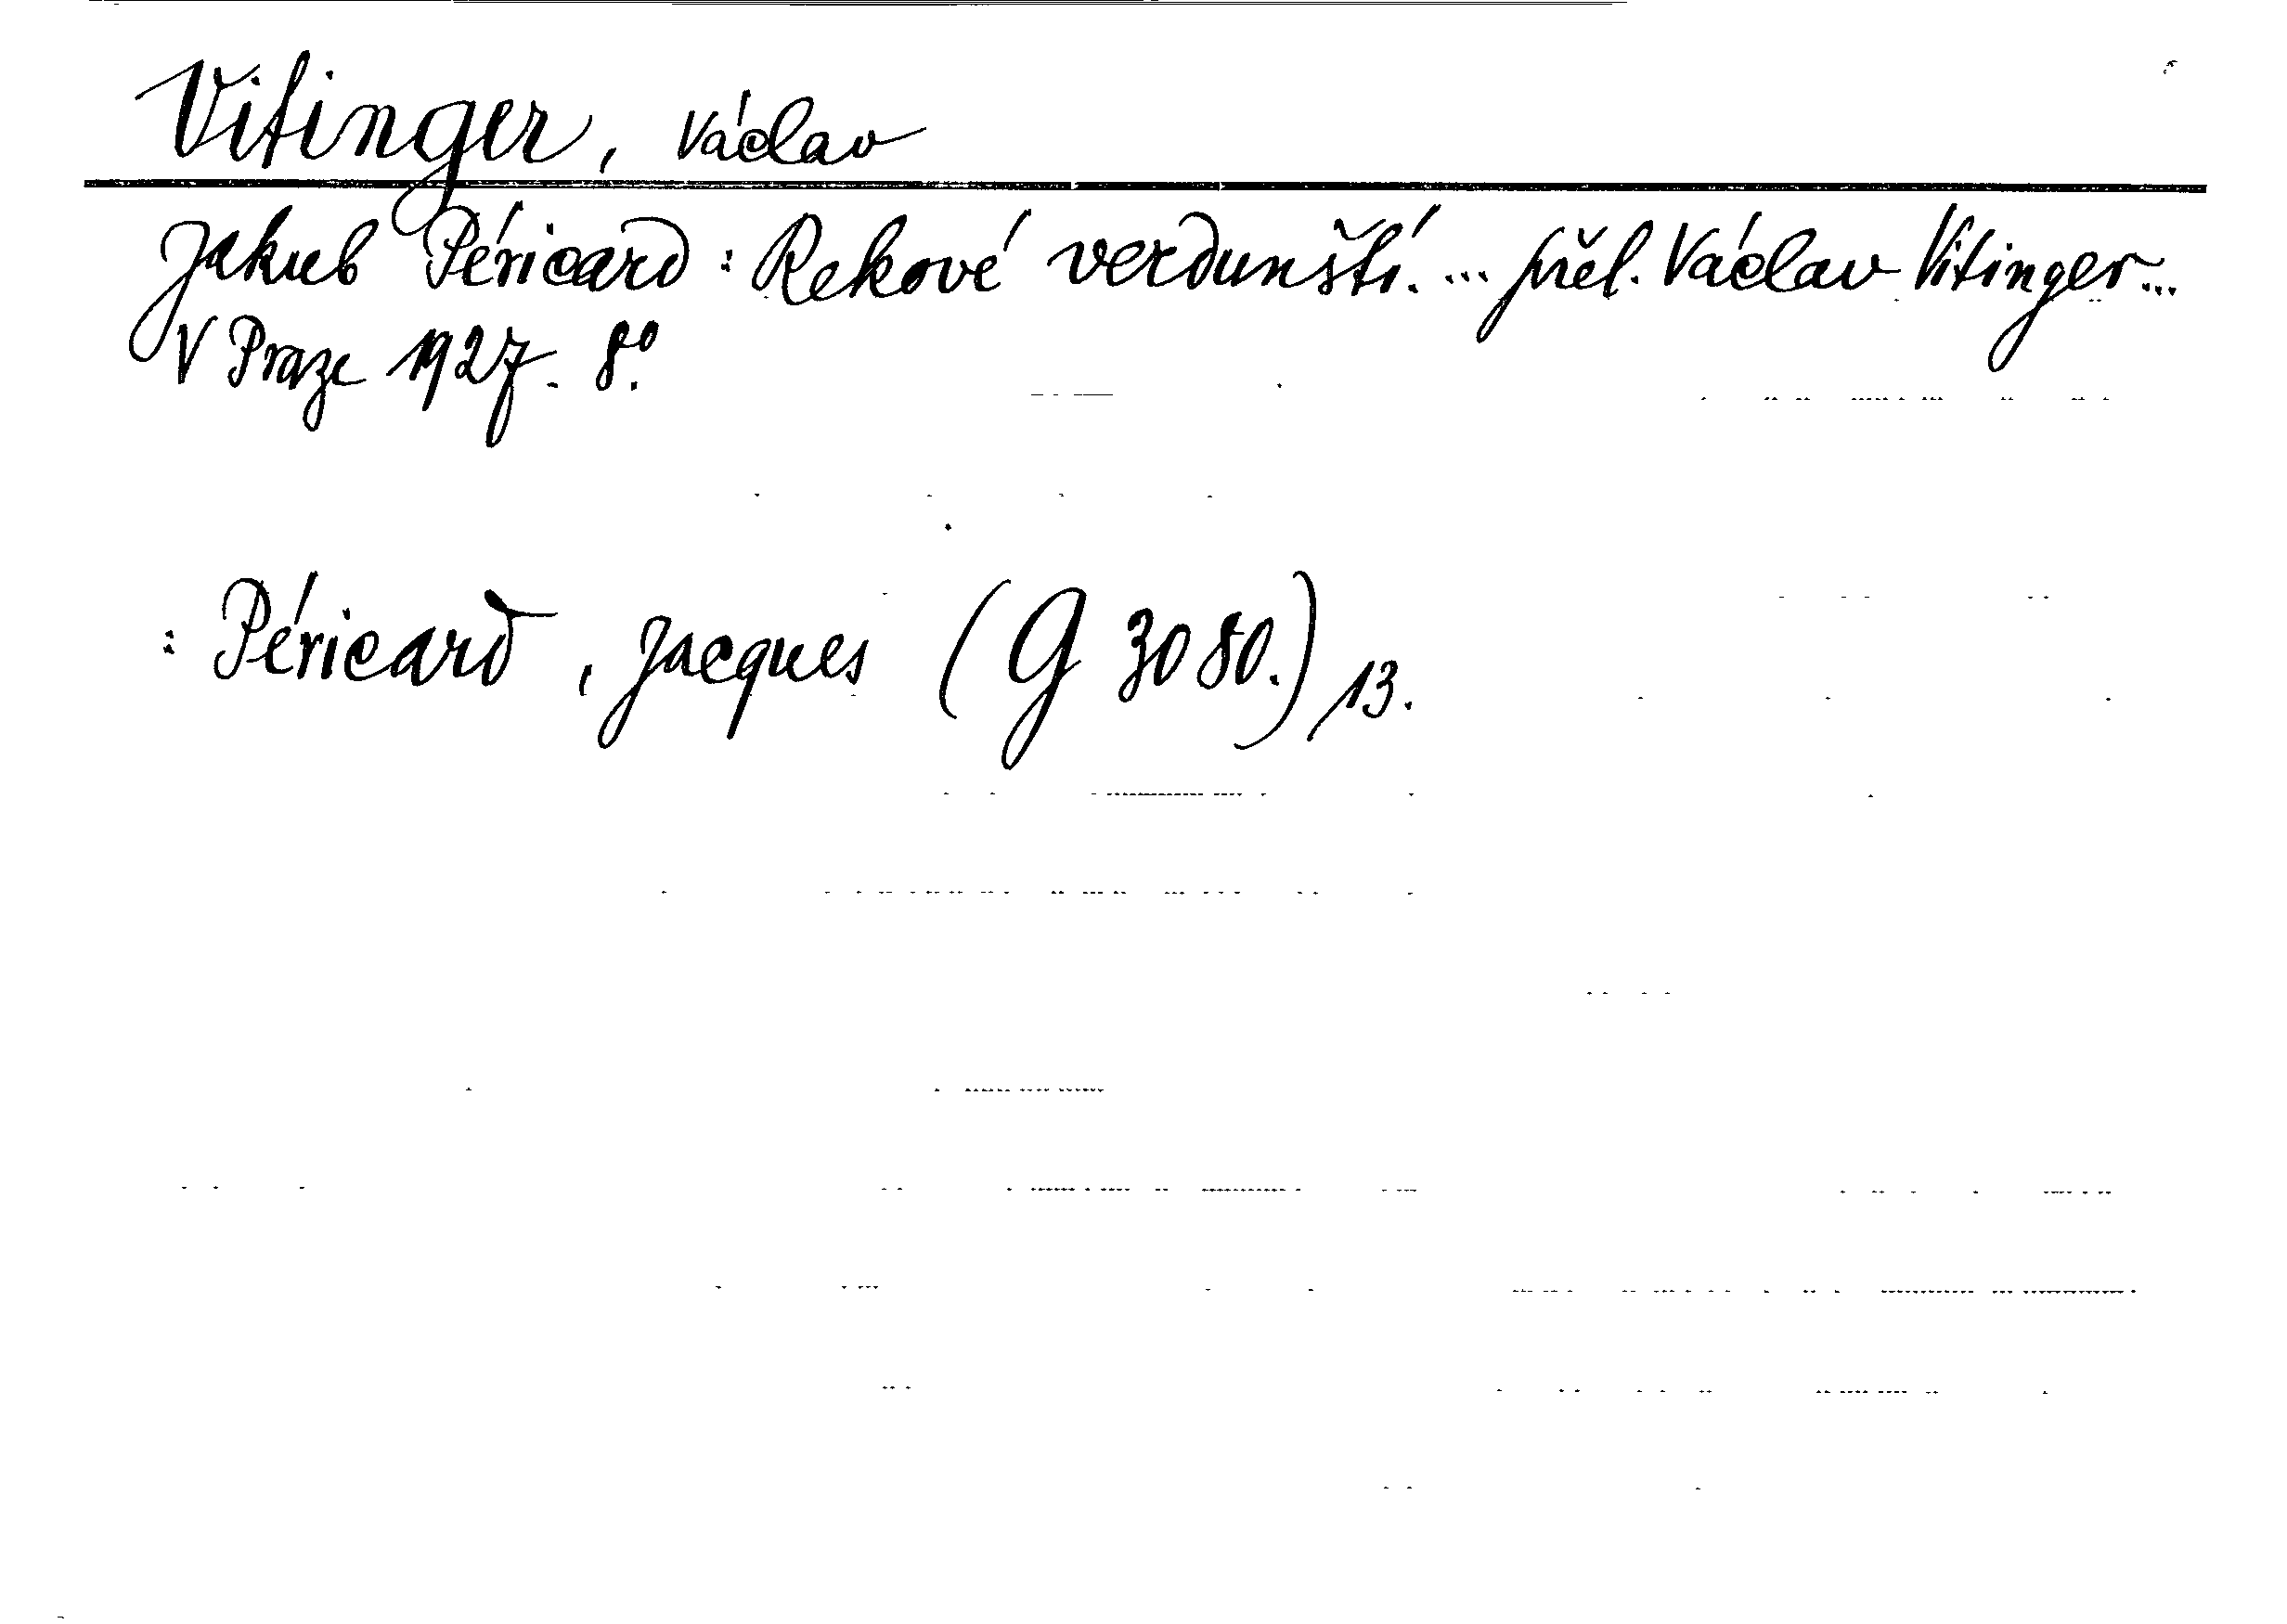 Vitinger, Václav
Jakub Péricard: Rekové verdunští. ... přel. Václav Vitinger...
V Praze 1927. 8°.
: Péricard, Jacques (G 3080.) 13.